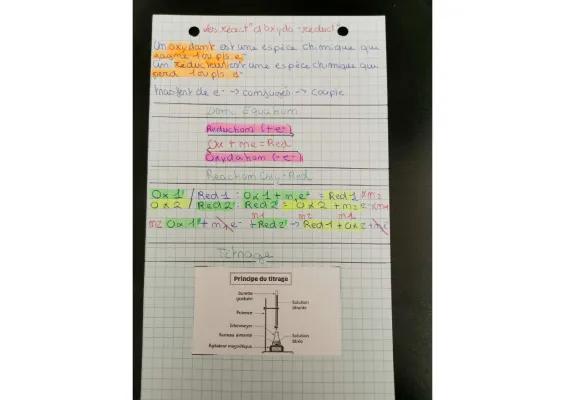 Les réact° d'oxydo-réduct°
Un oxydant est une espèce chimique qui
gagne 1 ou pls. e-
Un réducteur est une espèce chimique qui
perd 1 ou pls. e-
transfert de e- → conjugués → couple
Dem. Équation
Réduction (+e-)
Ox + ne = Red
Oxydation (-e-)
Réaction Oxy-Red
Ox 1 / Red 1 : Ox 1 + n1 e- = Red 1 x n2
Ox 2 / Red 2 : Red 2 = Ox 2 + n2 e- x n1
n1 n2 n1
n2 Ox 1 + n1 e- + Red 2 → Red 1 + Ox 2 + ne
Titrage
Principe du titrage
Burette
graduée
Solution
titrante
Potence
Erlenmeyer
Barreau aimanté
Solution
titrée
Agitateur magnétique